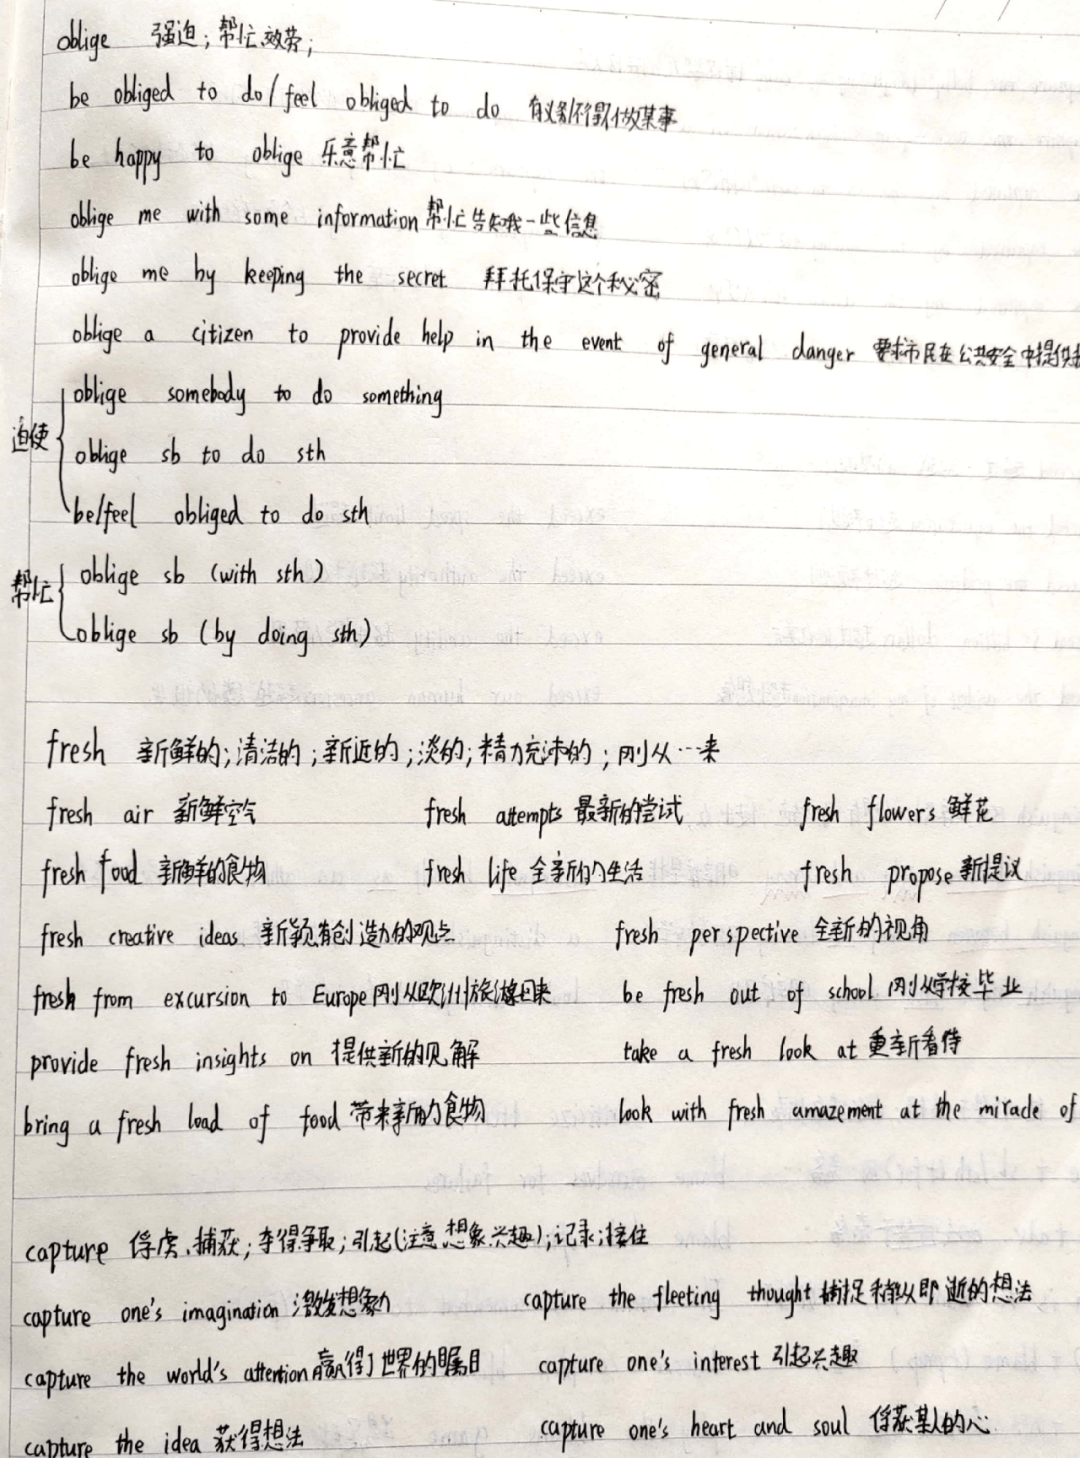 oblige 强迫；帮忙、效劳；
be obliged to do/feel obliged to do 有义务/不得不做某事
be happy to oblige 乐意帮忙
oblige me with some information 帮忙告知我一些信息
oblige me by keeping the secret 拜托保守这个秘密
oblige a citizen to provide help in the event of general danger 要求市民在公共安全中提供
oblige somebody to do something
迫使 oblige sb to do sth
be/feel obliged to do sth
帮忙 oblige sb (with sth)
oblige sb (by doing sth)
fresh 新鲜的；清洁的；新近的；淡的；精力充沛的；刚从…来
fresh air 新鲜空气 fresh attempts 最新的尝试 fresh flowers 鲜花
fresh food 新鲜的食物 fresh life 全新的生活 fresh propose 新提议
fresh creative ideas 新颖有创造力的观点 fresh perspective 全新的视角
fresh from excursion to Europe 刚从欧洲旅游回来 be fresh out of school 刚从学校毕业
provide fresh insights on 提供新的见解 take a fresh look at 重新看待
bring a fresh load of food 带来新的食物 look with fresh amazement at the miracle of
capture 俘虏、捕获；夺得争取；引起(注意、想象、兴趣)；记录；接住
capture one's imagination 激发想象力 capture the fleeting thought 捕捉稍纵即逝的想法
capture the world's attention 赢得了世界的瞩目 capture one's interest 引起兴趣
capture the idea 获得想法 capture one's heart and soul 俘获某人的心